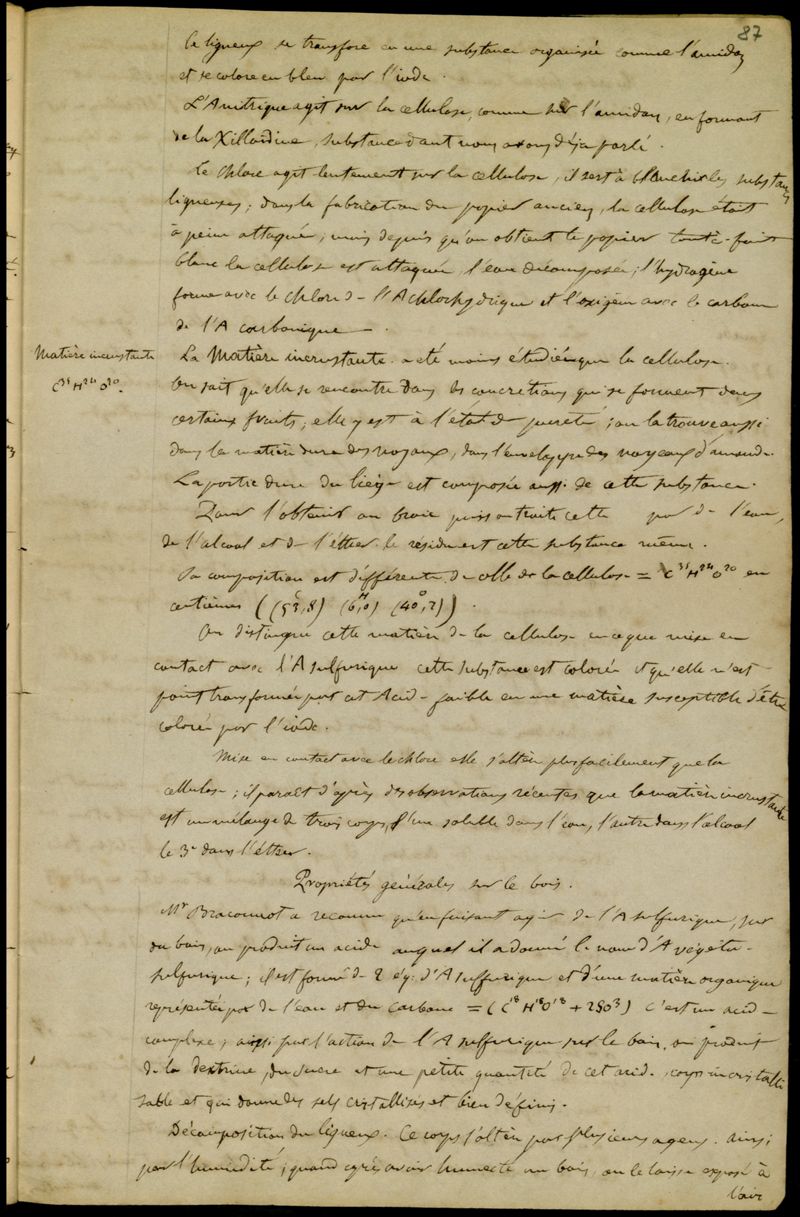 87
le ligneux se transfore en une substance organisée comme l'amidon
et se colore en bleu par l'iode.
L'A nitrique agit sur la cellulose, comme sur l'amidon, en formant
de la Xilloidine, substance dont nous avons déja parlé.
Le Chlore agit lentement sur la cellulose, il sert à blanchir les substances
ligneuses; dans la fabrication du papier ancien, la cellulose était
à peine attaquée; mais depuis qu'on obtient le papier tout à fait
blanc la cellulose est attaquée, l'eau décomposée; l'hydrogène
forme avec le chlore de l'A chlorhydrique et l'oxigène avec le carbone
de l'A carbonique.
Matière incrustante
C³⁵H²⁴O²⁰.
La Matière incrustante a été moins étudiée que la cellulose.
On sait qu'elle se rencontre dans les concrétions qui se forment dans
certains fruits; elle y est à l'état de pureté; on la trouve aussi
dans la matière dure des noyaux, dans l'enveloppe des noyaux d'amande.
La partie dure du liège est composée aussi de cette substance.
Pour l'obtenir on broie puis on traite cette par de l'eau,
de l'alcool et de l'éther. le résidu est cette substance même.
Sa composition est différente de celle de la cellulose = C³⁵H²⁴O²⁰ en
centièmes ((C 53,8) (H 6,0) (O 40,2)).
On distingue cette matière de la cellulose en ce que mise en
contact avec l'A sulfurique cette substance est colorée et qu'elle n'est
point transformée par cet Acide faible en une matière susceptible d'être
colorée par l'iode.
Mise en contact avec le chlore elle s'altère plus facilement que la
cellulose; il parait d'après des observations récentes que la matière incrustante
est un mélange de trois corps, l'un soluble dans l'eau, l'autre dans l'alcool
le 3e dans l'éther.
Propriétés générales sur le bois.
Mr Braconnot a reconnu qu'en faisant agir de l'A sulfurique, sur
du bois, on produit un acide auquel il a donné le nom d'A végéto-
sulfurique; il est formé de 2 éq. d'A sulfurique et d'une matière organique
représentée par de l'eau et du carbone = (C¹⁸H¹⁸O¹⁸ + 2SO³) c'est un acide
complexe; ainsi par l'action de l'A sulfurique sur le bois, on produit
de la dextrine, du sucre et une petite quantité de cet acide, corps incristalli
sable et qui donne des sels cristallisés et bien définis.
Décomposition du ligneux. Ce corps s'altère par plusieurs agens. ainsi
par l'humidité; quand après avoir humecté un bois, on le laisse exposé à
l'air